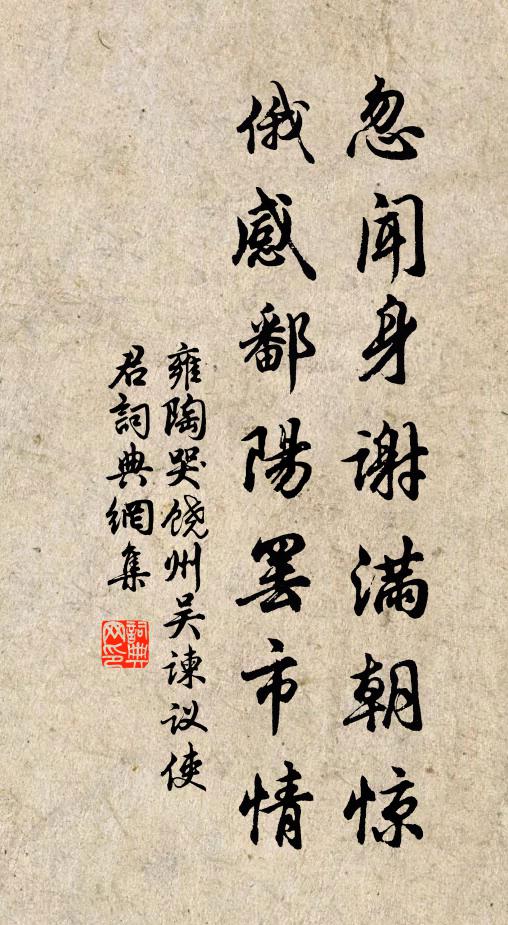 忽闻身谢满朝惊
俄感鄱陽罢市情
雍陶哭饶州吴谏议使
君詞典網集
詞典网印